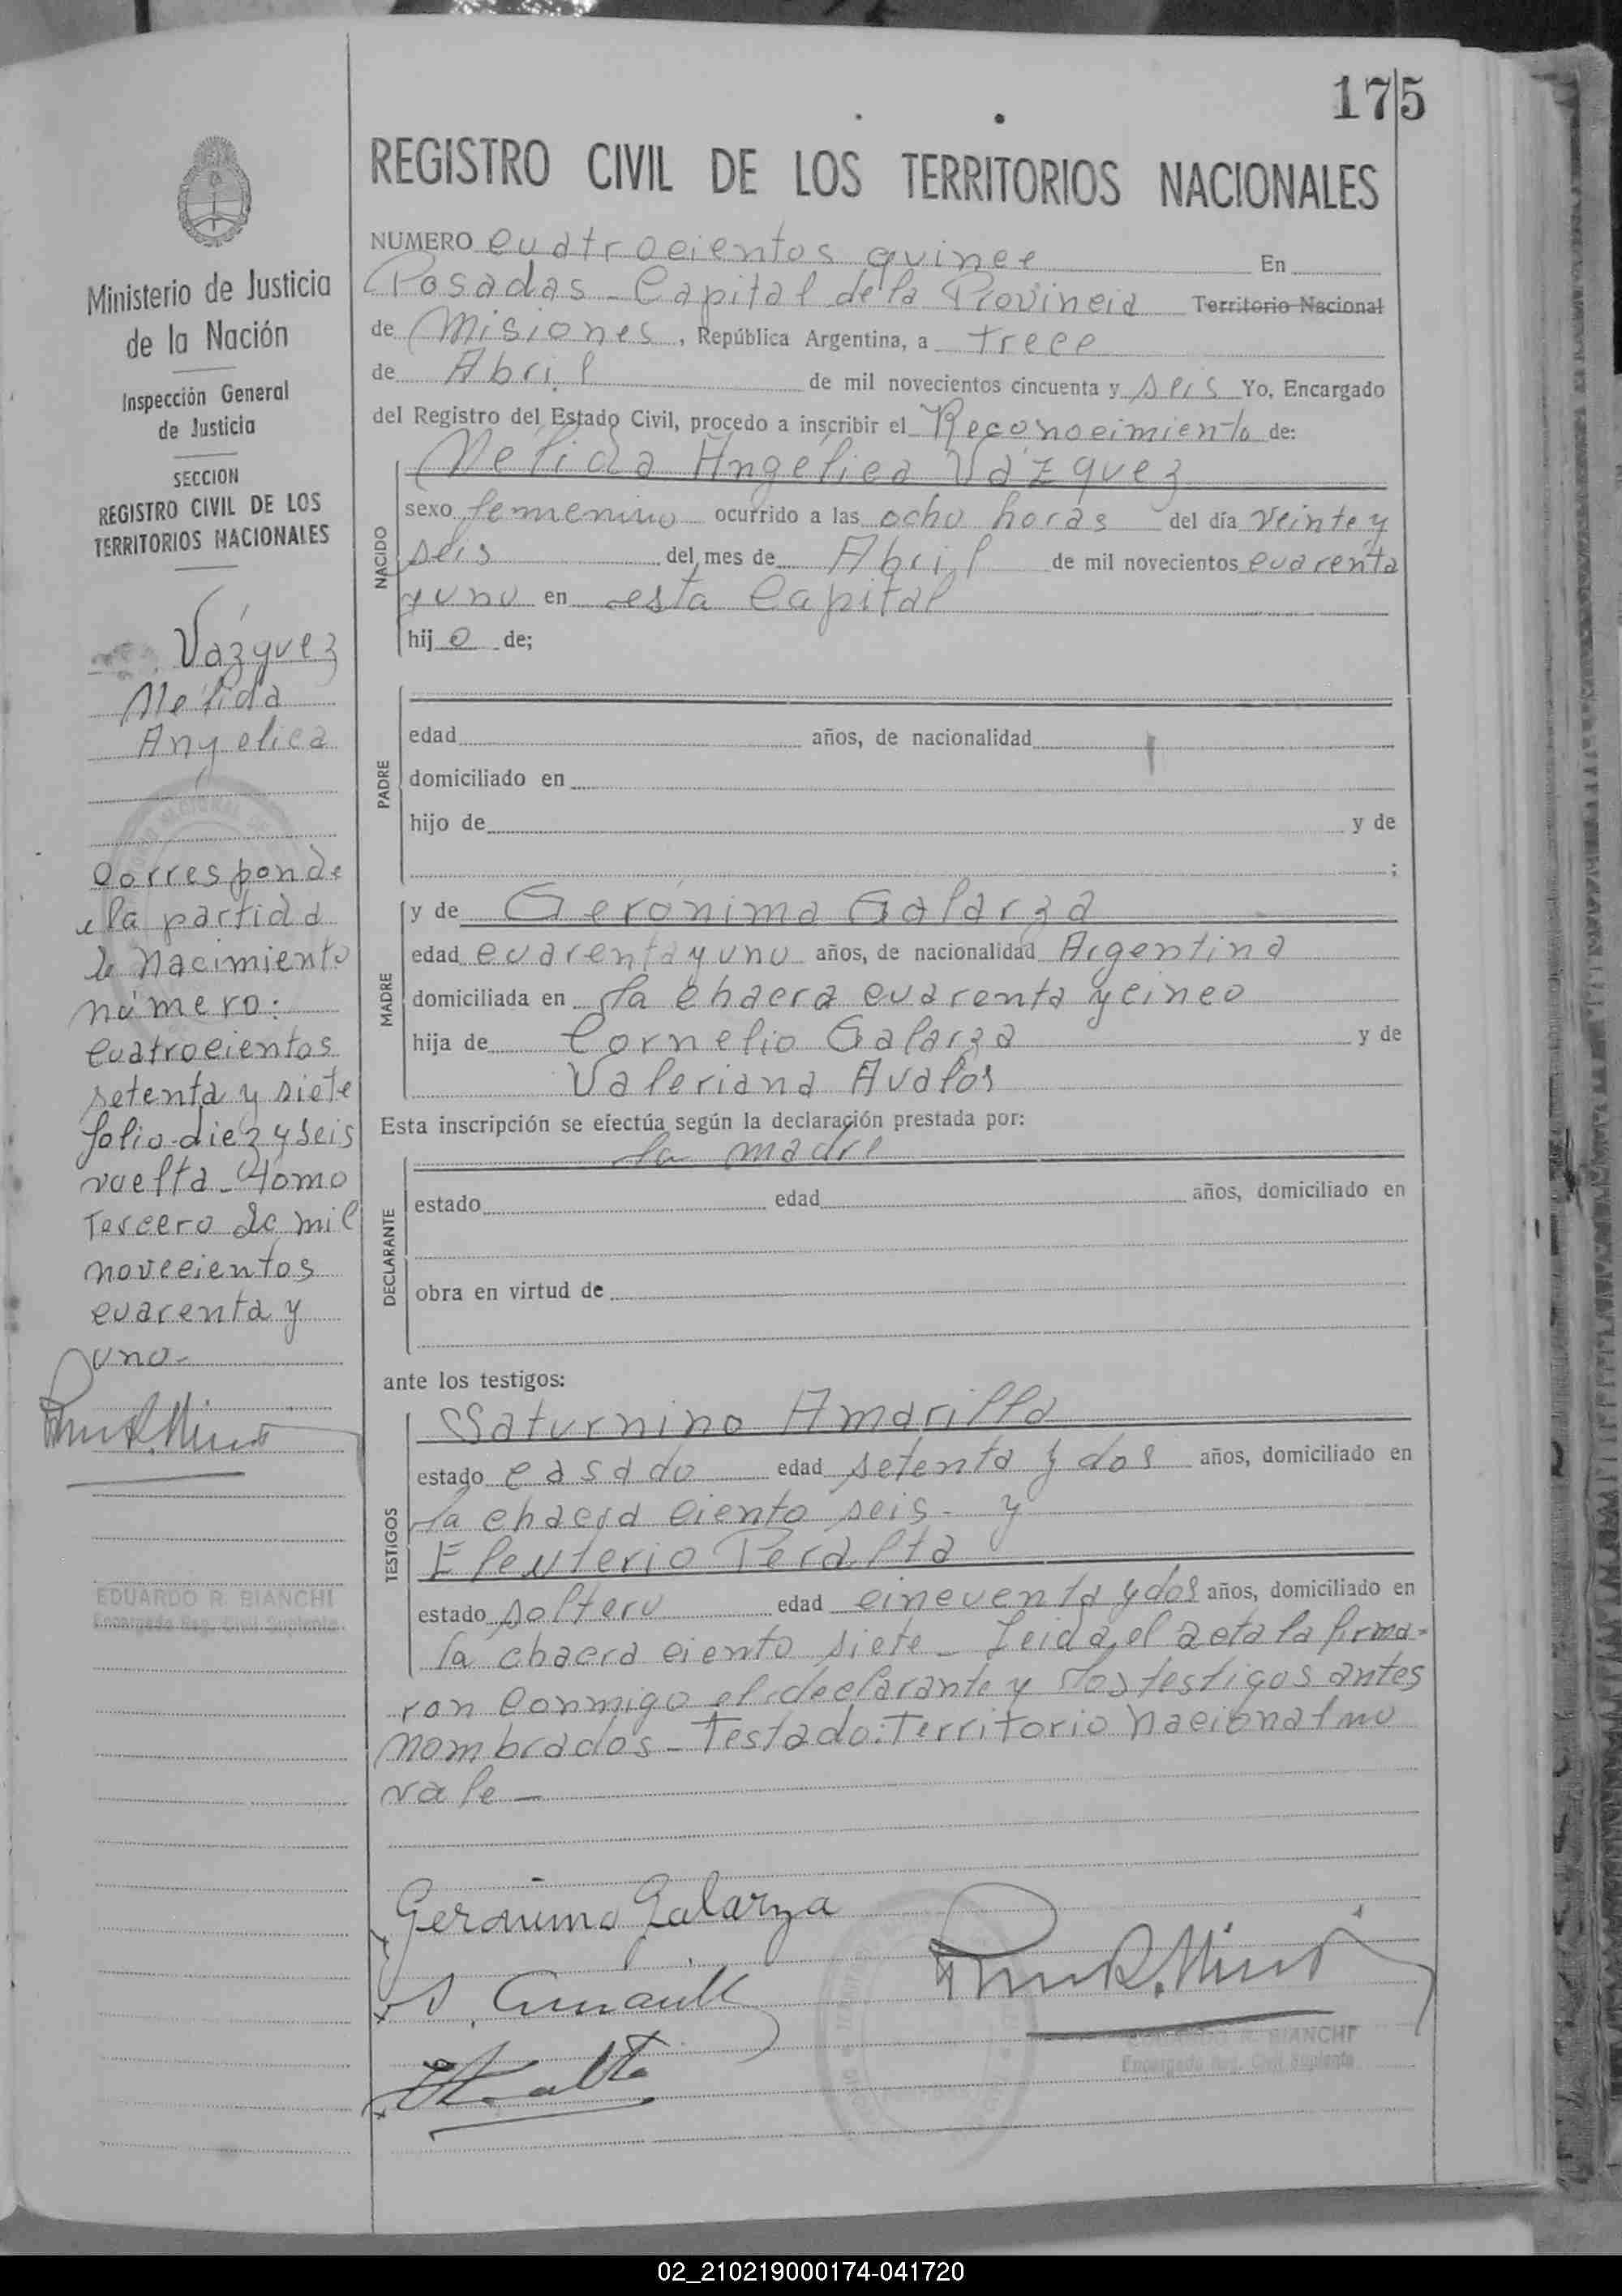 175
REGISTRO CIVIL DE LOS TERRITORIOS NACIONALES
NUMERO cuatrocientos quince En
Posadas - Capital de la Provincia Territorio Nacional
de Misiones, República Argentina, a trece
de Abril de mil novecientos cincuenta y seis Yo, Encargado
del Registro del Estado Civil, procedo a inscribir el Reconocimiento de:
NACIDO
Nélida Angélica Vázquez
sexo femenino ocurrido a las ocho horas del día veinte y
seis del mes de Abril de mil novecientos cuarenta
y uno en esta Capital
hijo de;
PADRE
edad años, de nacionalidad
domiciliado en
hijo de y de
;
MADRE
y de Gerónima Galarza
edad cuarenta y uno años, de nacionalidad Argentina
domiciliada en la chacra cuarenta y cinco
hija de Cornelio Galarza y de
Valeriana Avalos
Esta inscripción se efectúa según la declaración prestada por:
DECLARANTE
la madre
estado edad años, domiciliado en
obra en virtud de
ante los testigos:
TESTIGOS
Saturnino Amarilla
estado casado edad setenta y dos años, domiciliado en
la chacra ciento seis - y
Eleuterio Peralta
estado soltero edad cincuenta y dos años, domiciliado en
la chacra ciento siete - Leida el acta la firma-
ron conmigo el declarante y los testigos antes
nombrados - Testado: Territorio Nacional no
vale -
Gerónima Galarza
EDUARDO R. BIANCHI
Encargado Reg. Civil Suplente
Ministerio de Justicia
de la Nación
Inspección General
de Justicia
SECCION
REGISTRO CIVIL DE LOS
TERRITORIOS NACIONALES
Vázquez
Nélida
Angélica
Corresponde
a la partida
de nacimiento
número:
cuatrocientos
setenta y siete
folio diez y seis
vuelta - Tomo
Tercero de mil
novecientos
cuarenta y
uno-
EDUARDO R. BIANCHI
Encargado Reg. Civil Suplente
02_210219000174-041720